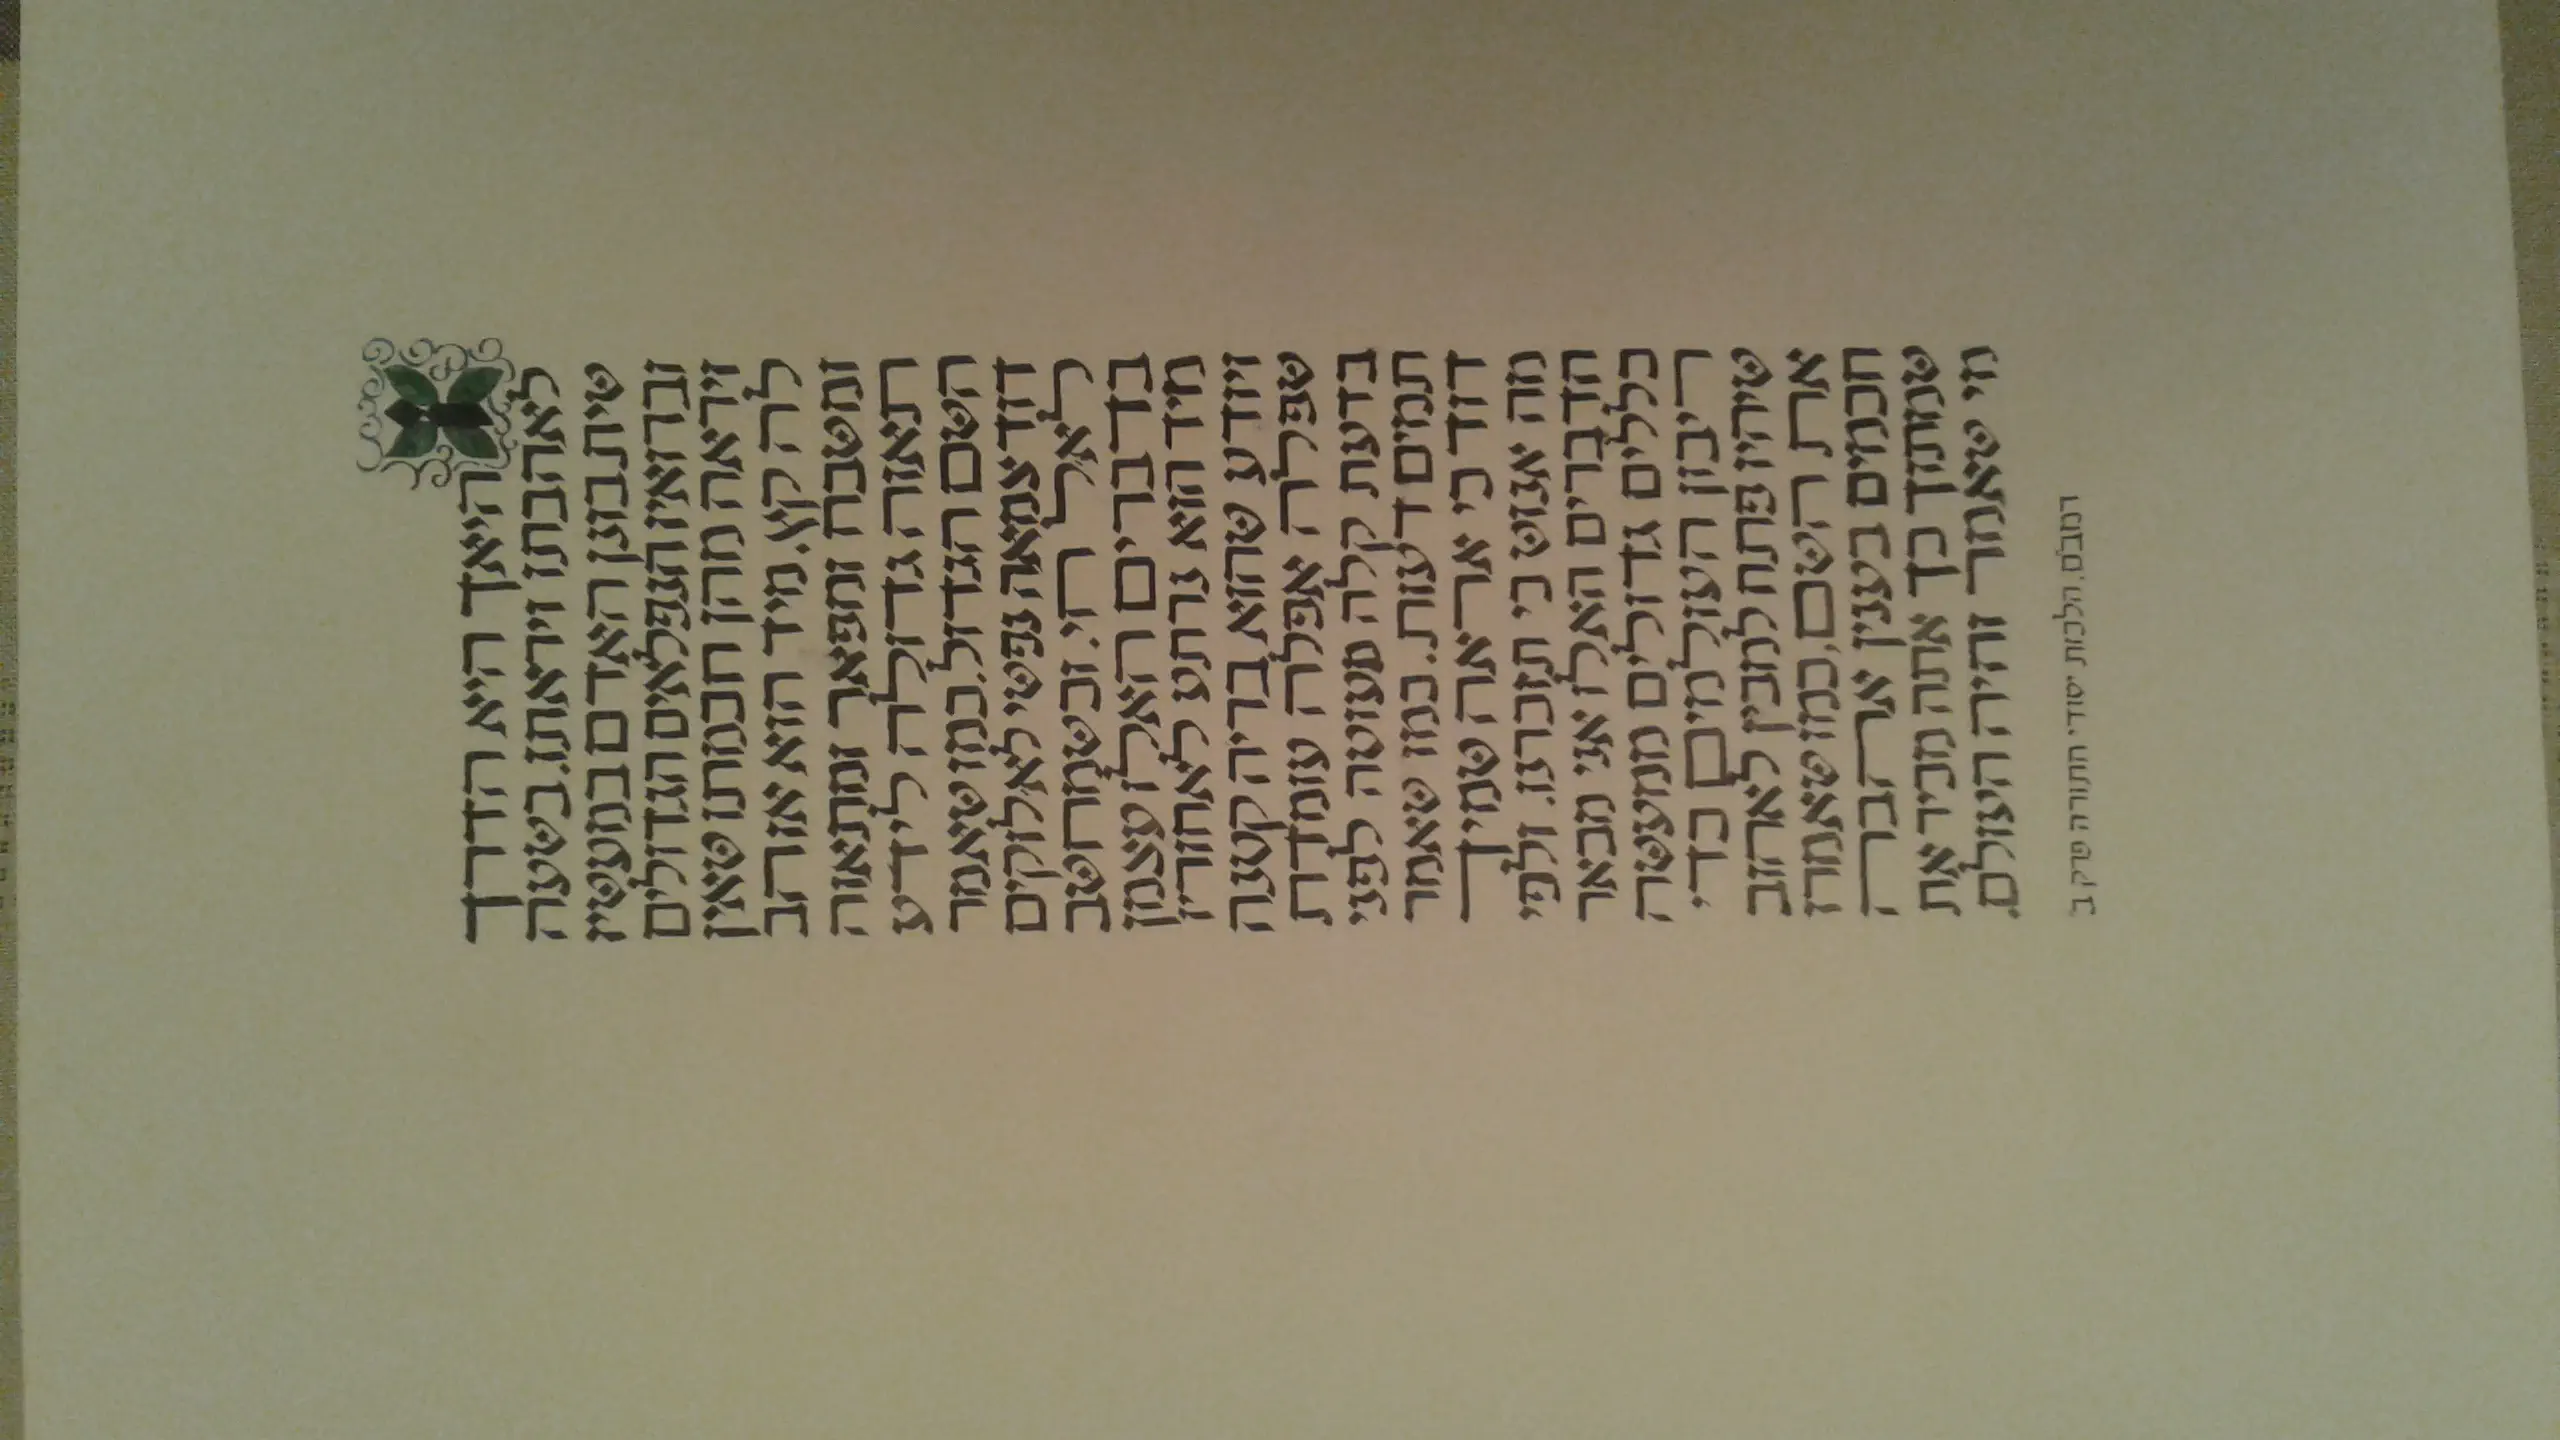 היאך היא הדרך
לאהבתו ויראתו. בשעה
שיתבונן האדם במעשיו
וברואיו הנפלאים הגדולים
ויראה מהן חכמתו שאין
לה קץ. מיד הוא אוהב
ומשבח ומפאר ומתאוה
תאוה גדולה לידע
השם הגדול. כמו שאמר
דוד צמאה נפשי לאלוקים
לאל חי. וכשמחשב
בדברים האלו עצמן
מיד הוא נרתע לאחוריו
ויודע שהוא בריה קטנה
שפלה אפלה עומדת
בדעת קלה מעוטה לפני
תמים דעות. כמו שאמר
דוד כי אראה שמיך
מה אנוש כי תזכרנו. ולפי
הדברים האלו אני מבאר
כללים גדולים ממעשה
ריבון העולמים כדי
שיהיו פתח למבין לאהוב
את השם, כמו שאמרו
חכמים בענין אהבה
שמתוך כך אתה מכיר את
מי שאמר והיה העולם.
רמב"ם. הלכות יסודי התורה פרק ב